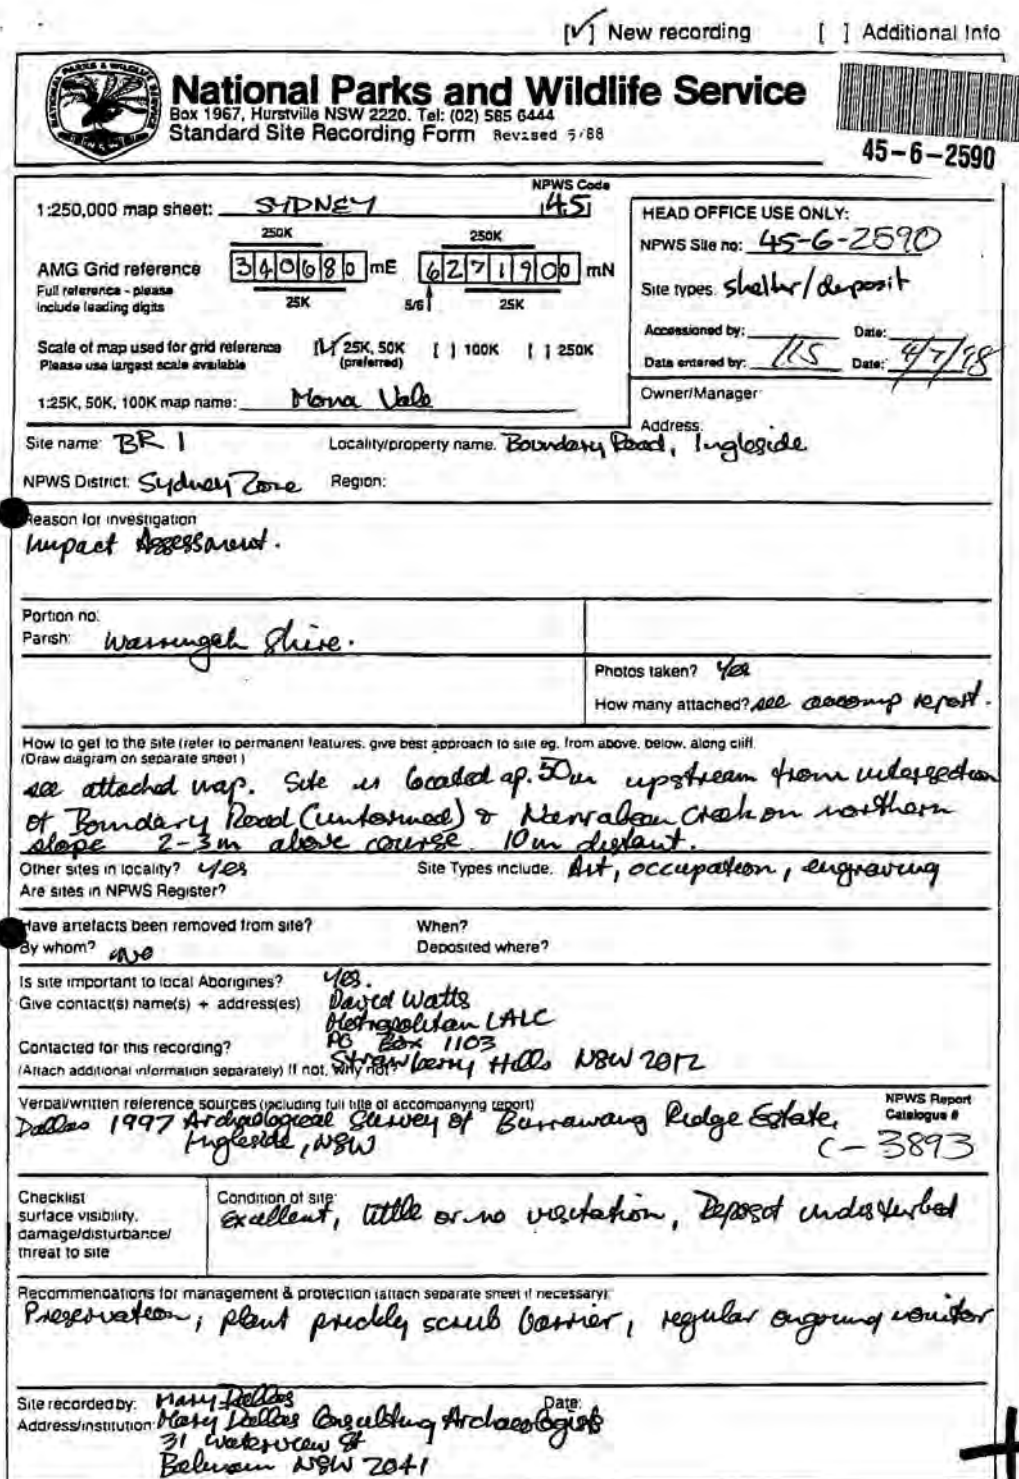 [✓] New recording [ ] Additional Info
National Parks and Wildlife Service
Box 1967, Hurstville NSW 2220. Tel: (02) 585 6444
Standard Site Recording Form Revised 5/88
45-6-2590
1:250,000 map sheet: SYDNEY NPWS Code 45
HEAD OFFICE USE ONLY:
250K 250K
NPWS Site no: 45-6-2590
AMG Grid reference 340680 mE 6271900 mN
Full reference - please include leading digits
25K 5/6 25K
Site types: Shelter/deposit
Accessioned by: Date:
Scale of map used for grid reference [✓] 25K, 50K [ ] 100K [ ] 250K
Please use largest scale available (preferred)
Data entered by: Date: 4/7/98
1:25K, 50K, 100K map name: Mona Vale
Owner/Manager
Address:
Site name: BR 1 Locality/property name. Boundary Road, Ingleside
NPWS District: Sydney Zone Region:
Reason for investigation
Impact Assessment.
Portion no:
Parish: Warringah Shire.
Photos taken? Yes
How many attached? see accomp report.
How to get to the site (refer to permanent features, give best approach to site eg. from above, below, along cliff.
(Draw diagram on separate sheet)
see attached map. Site is located ap. 50m upstream from intersection
of Boundary Road (unformed) & Narrabeen Creek on northern
slope 2-3m above course. 10m distant.
Other sites in locality? Yes Site Types include. Art, occupation, engraving
Are sites in NPWS Register?
Have artefacts been removed from site? When?
By whom? No Deposited where?
Is site important to local Aborigines? Yes.
Give contact(s) name(s) + address(es) David Watts
Metropolitan LALC
Contacted for this recording? PO Box 1103
(Attach additional information separately) If not, why not? Strawberry Hills NSW 2012
Verbal/written reference sources (including full title of accompanying report)
NPWS Report
Catalogue #
Dallas 1997 Archaeological Survey of Burrawang Ridge Estate,
Ingleside, NSW
C-3893
Checklist
surface visibility,
damage/disturbance/
threat to site
Condition of site:
Excellent, little or no visitation, Deposit undisturbed
Recommendations for management & protection (attach separate sheet if necessary):
Preservation, plant prickly scrub barrier, regular ongoing monitor
Site recorded by: Mary Dallas Date:
Address/institution: Mary Dallas Consulting Archaeologists
31 Waterview St
Balmain NSW 2041